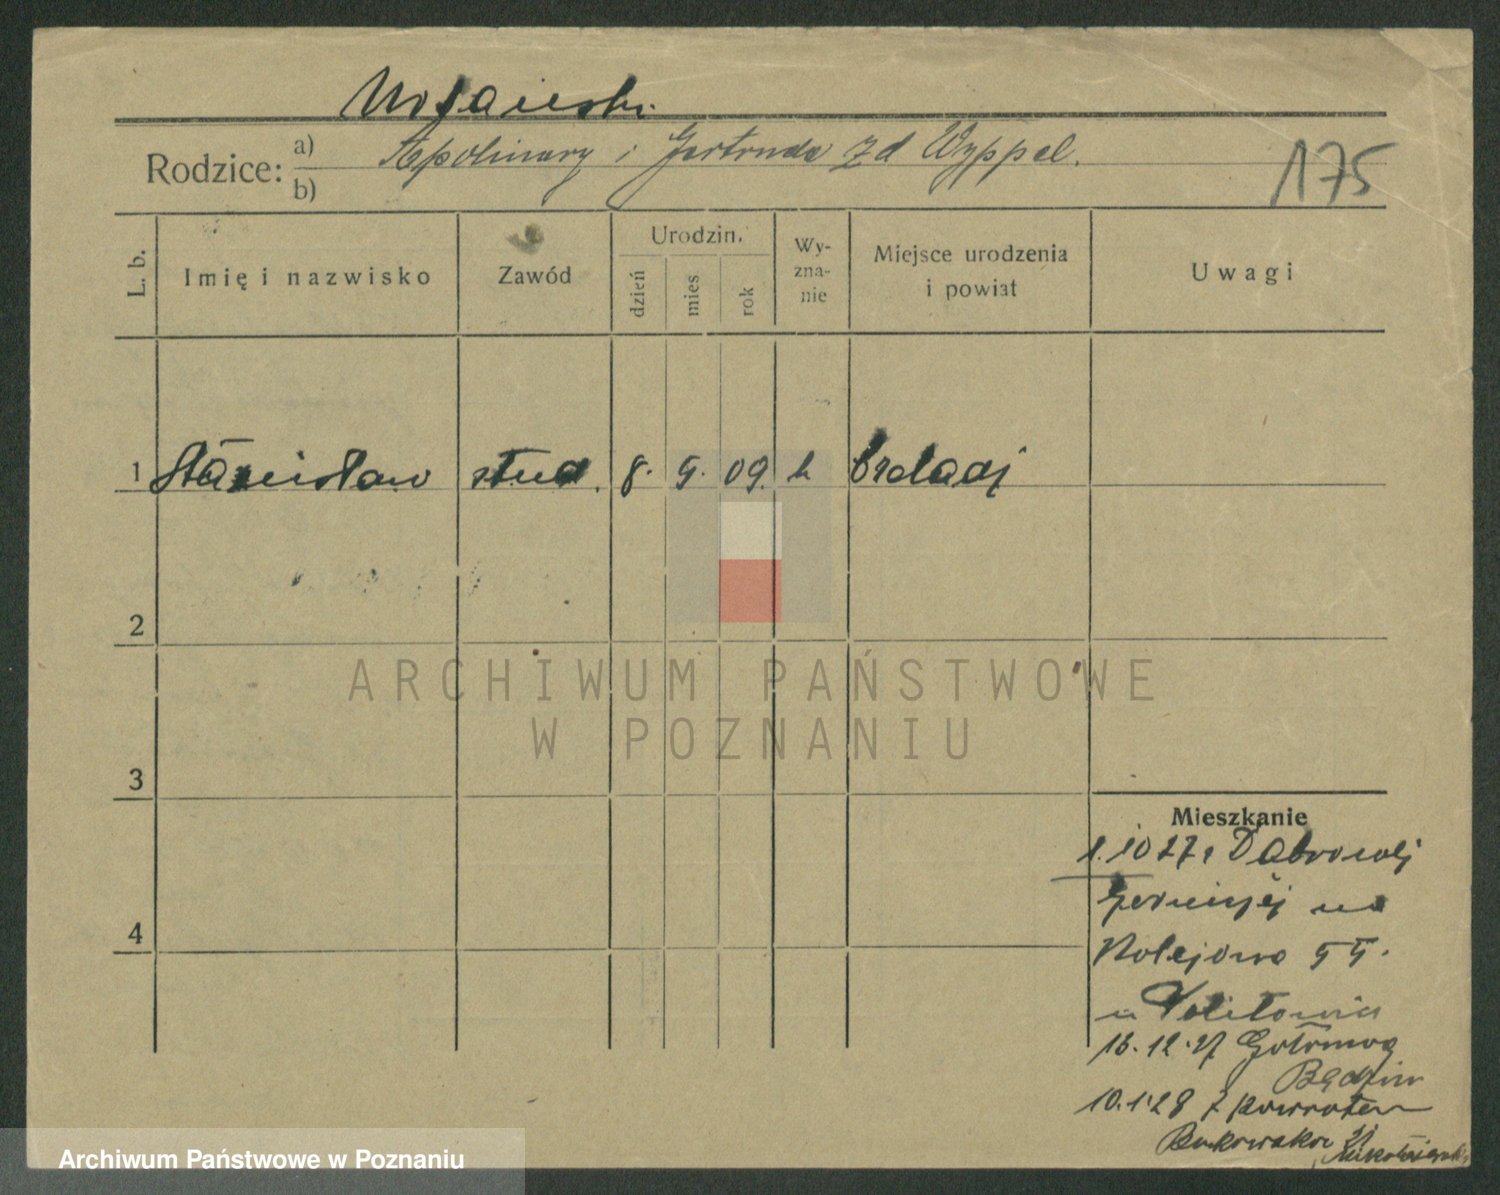 Rodzice: a) Apolinary i Gertruda zd Wyppel.
b)
175
L. b.
Imię i nazwisko
Zawód
Urodzin.
dzień
mies
rok
Wy-
zna-
nie
Miejsce urodzenia
i powiat
Uwagi
1 Stanisław stud. 8. 9. 09. k
2
3
4
Mieszkanie
1.10 27 z Dąbrowej
Górniczej na
Kolejowa 55.
u
16.12.27
Będzin
10.1.28 z powrotem
Bukowska
ARCHIWUM PAŃSTWOWE
W POZNANIU
Archiwum Państwowe w Poznaniu